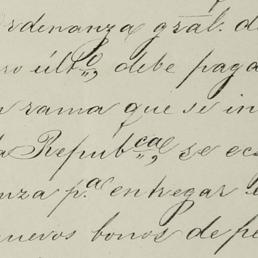 ordenanza gral. d
ro últo, debe paga
n rama que se in
la Repúbca, se ec
nza pa entregar
nuevos bonos de pe